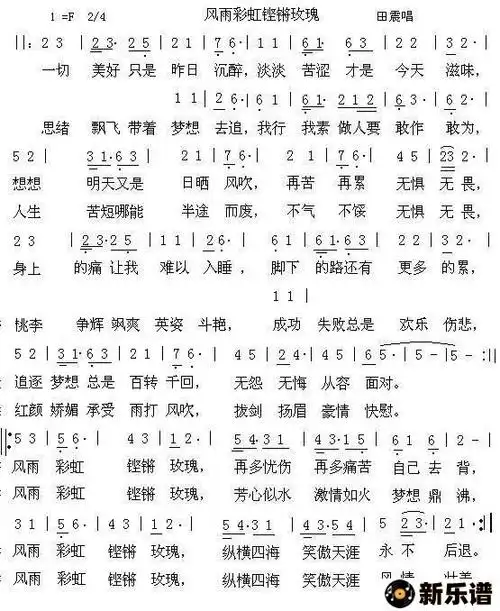 1 =F 2/4 风雨彩虹铿锵玫瑰 田震唱
||: 2 3 | 2·3 2 5 | 2 1 | 7 6· | 1 2 | 6·1 6 3 | 1 1 | 2·6· |
一切 美好 只是 昨日 沉醉，淡淡 苦涩 才是 今天 滋味，
1 1 | 2·6· | 1 2 | 6·1 2 1 2 | 6 1 | 6 2·
思绪 飘飞 带着 梦想 去追，我行 我素 做人要 敢作 敢为，
5 2 | 3 1·6 3 | 2 1 | 7 6· | 1 2 | 7·5 6 3 | 4 5 | 2 3 - |
想想 明天又是 日晒 风吹，再苦 再累 无惧 无畏，
人生 苦短哪能 半途 而废，不气 不馁 无惧 无畏，
2 3 | 2·3·2 5 | 1 1 | 2 6· | 1 2 | 6·1·6 3 | 1 1 | 2 6· |
身上 的痛 让我 难以 入睡，脚下 的路还有 更多 的累，
1 1 |
桃李 争辉 飒爽 英姿 斗艳，成功 失败总是 欢乐 伤悲，
5 2 | 3·1·6 3 | 2 1 | 7 6· | 4 5 | 2·4· | 6 1 6 2 | 5· | 5 - | 5 - :||
追逐 梦想 总是 百转 千回，无怨 无悔 从容 面对。
红颜 娇媚 承受 雨打 风吹，拔剑 扬眉 豪情 快慰。
||: 5 3 | 5 6· | 4 3 | 1 2· | 5·4 3 1 | 5·4 3 2 | 6 1 | 6 2· |
风雨 彩虹 铿锵 玫瑰，再多忧伤 再多痛苦 自己 去 背，
风雨 彩虹 铿锵 玫瑰，芳心似水 激情如火 梦想 鼎 沸，
3 1 | 5 6· | 4 3 | 1 2· | 5·4 3 1 | 5·4 3 2 | 5 2 3· | 1 - :||
风雨 彩虹 铿锵 玫瑰，纵横四海 笑傲天涯 永不 后退。
风雨 彩虹 铿锵 玫瑰，纵横四海 笑傲天涯
新乐谱